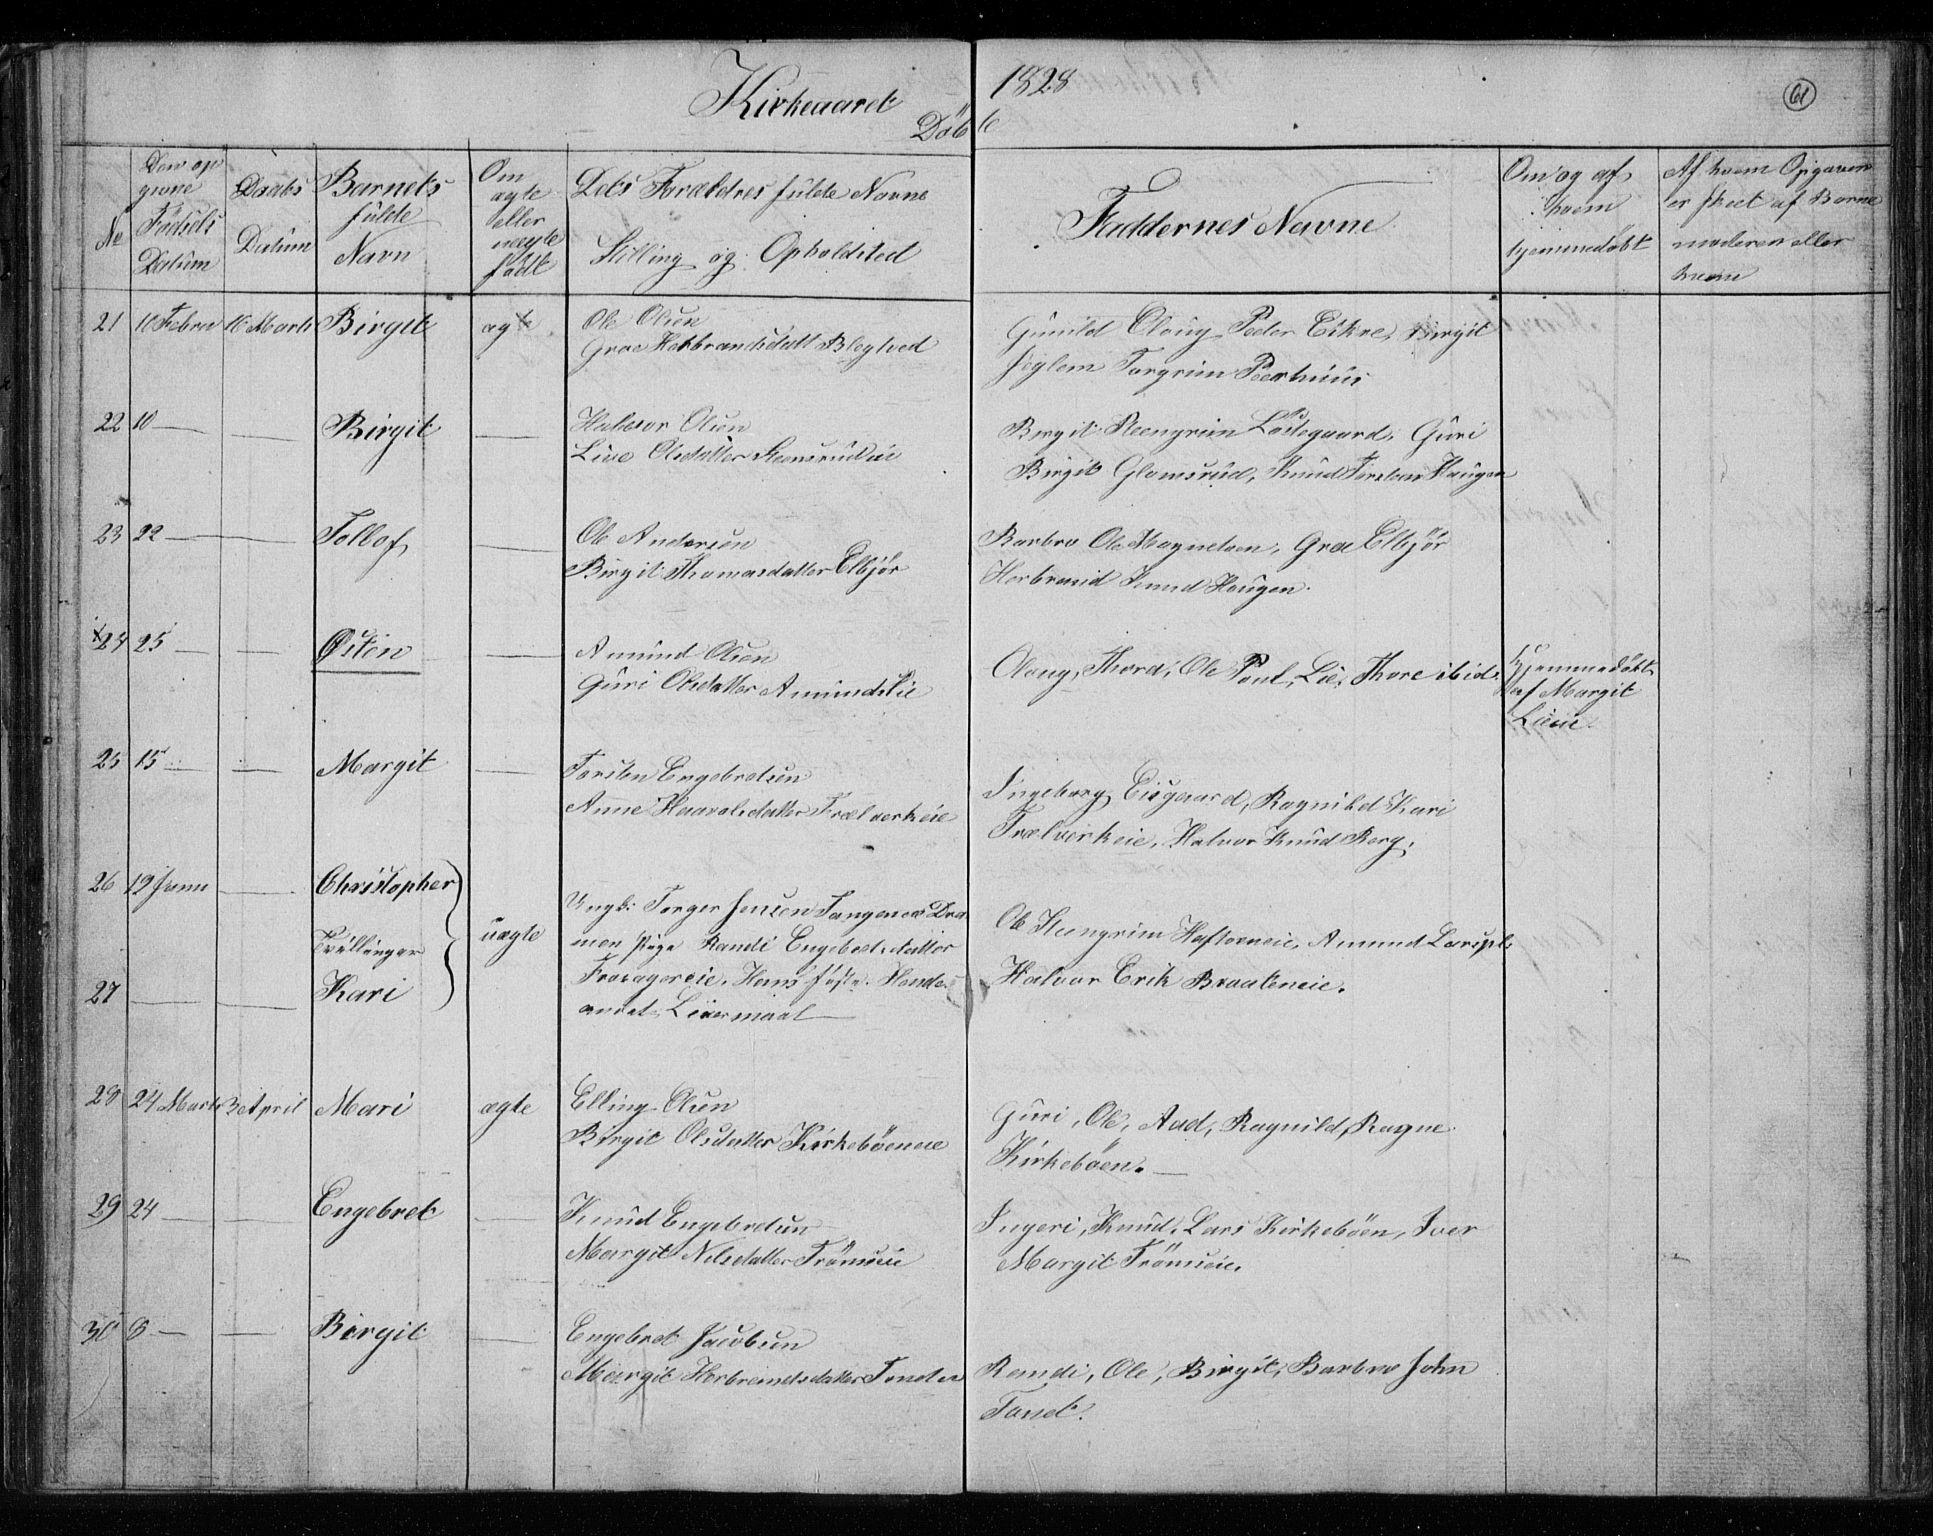 Kirkeaaret 1828
61
Døbte
No
Den op
givne
Fødsels
Datum
Daabs
Datum
Barnets
fulde
Navn
Om
ægte
eller
uægte
født
Dets Forældres fulde Navne
Stilling og Opholdsted
Faddernes Navne
Om og af
hvem
hjemmedøbt
Af hvem Opgaven
er skeet af Barne
moderen eller
hvem
21 10 Febru 16 Marts Birgit ægte
Ole Olsen
Groe Herbrandsdatt
Gunild Oloug Peder Eikre, Birgit
Torgrim Peerhuus
22 10 — — Birgit —
Halvor Olsen
Live Olsdatter
Birgit Steengrim Låstegaard, Guri
Birgit Glomsrud, Knud Haugen
23 22 — — Tollof —
Ole Andersen
Birgit Thomasdatter Elbjør
Barbro Ole Magnetsen, Groe Elbjør
Herbrand Knud Haugen.
24 25 — — Østen —
Amund Olsen
Guri Olsdatter Amundslie
Oloug, Thora, Ole Poul, Lie, Thore ibid.
Hjemmedøbt
af Margit
Lieie.
25 15 — — Margit —
Torsten Engebretsen
Anne Haavalsdatter Trælverkeie
Ingeborg Eisgaard, Ragnild Kari
Trælverkeie, Halvor Knud Berg.
26 19 Janu — Christopher
Tvillinger
27 — — Kari
uægte
Ungk: Torger Jensen Tangen
men Pige Randi Engebretsdatter
Hans første. Hendes
andet Leiermaal —
Ole Steengrim Amund
Halvor Erik Braateneie.
28 24 Marts 3 April Mari ægte
Elling Olsen
Birgit Olsdatter Kirkebøeneie
Guri, Ole, Aad, Ragnild, Ragne
Kirkebøen. —
29 24 — — Engebret —
Knud Engebretsen
Margit Nilsdatter Trömseie
Ingeri, Knud, Lars Kirkebøen, Iver
Margit Trömseie.
30 8 — — Birgit —
Engebret Jacobsen
Margit Herbrandsdatter
Randi, Ole, Birgit, Barbroe John